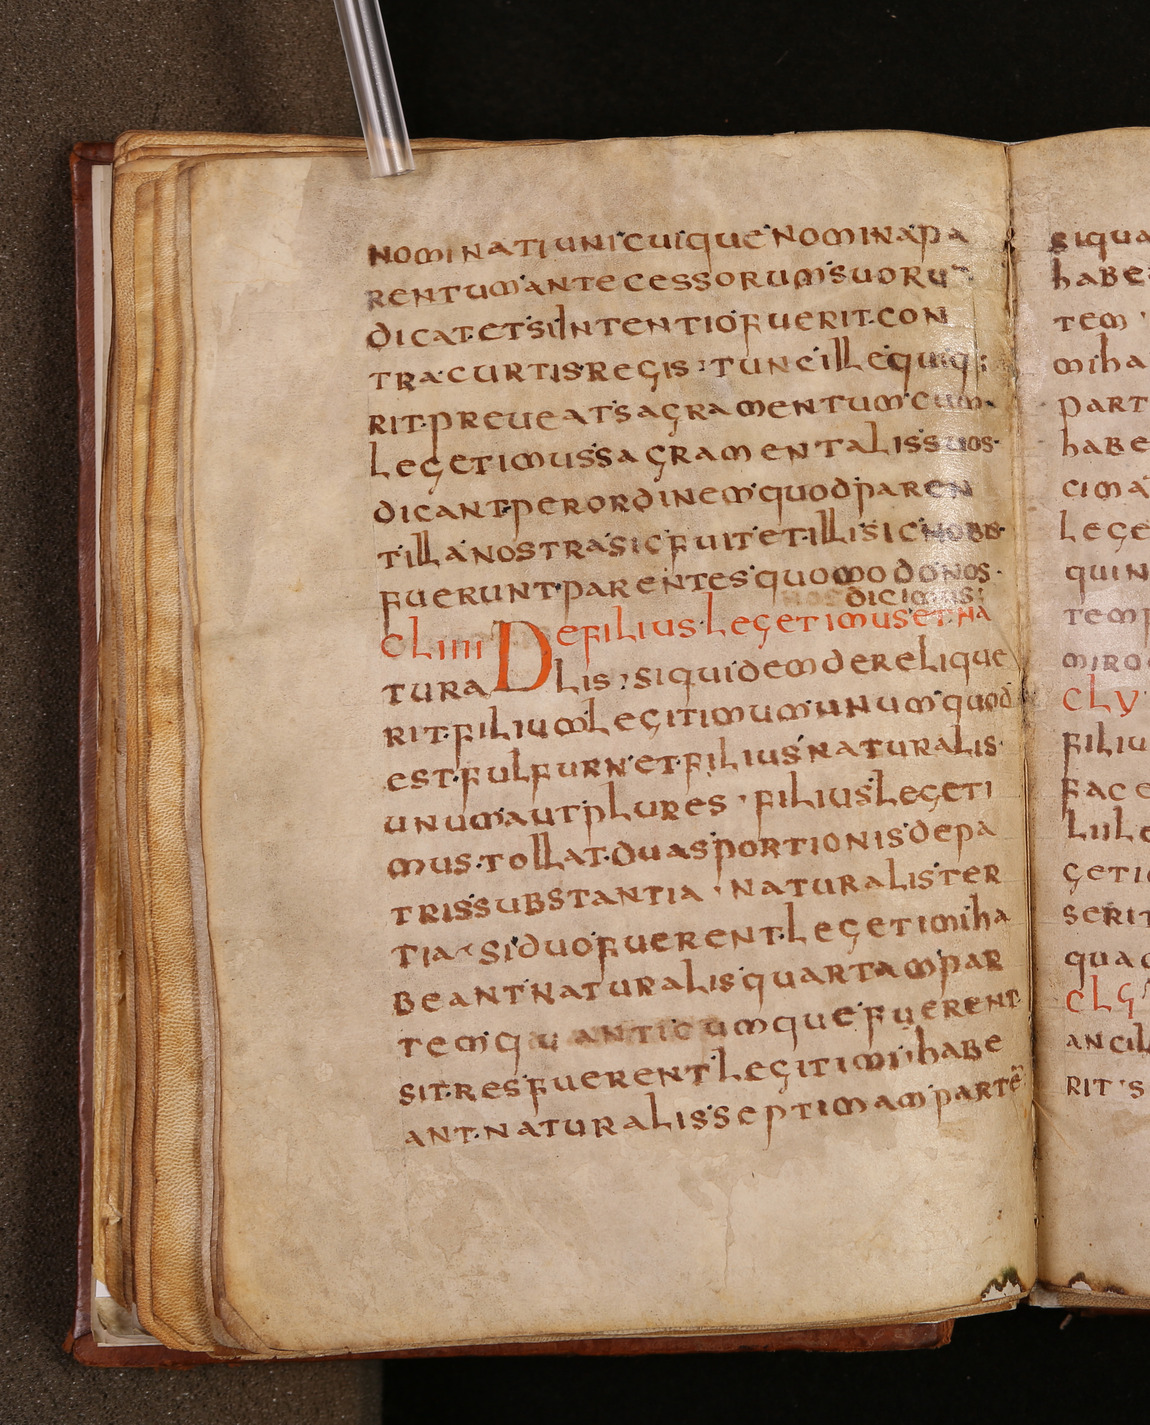 NOMINATI UNICUIQUE NOMINA PA
RENTUM ANTECESSORUM SUORU
DICAT ET SI INTENTIO FUERIT CON
TRA CURTIS REGIS TUNC ILLE QUI Q;
RIT PREVEAT SAGRAMENTUM CUM
LEGETIMUS SAGRAMENTALIS SUOS
DICANT PER ORDINEM QUOD PAREN
TILLA NOSTRA SIC FUIT ET ILLI SIC NOBIS
FUERUNT PARENTES QUOMODO NOS
DICIMUS;
CLIIII DE FILIUS LEGETIMUS ET NA
TURALIS; SI QUIDEM DERELIQUE
RIT FILIUM LEGITIMUM UNUM QUOD
EST FULFURN ET FILIUS NATURALIS
UNUM AUT PLURES FILIUS LEGETI
MUS TOLLAT DUAS PORTIONIS DE PA
TRIS SUBSTANTIA NATURALIS TER
TIA SI DUO FUERENT LEGETIMI HA
BEANT NATURALIS QUARTAM PAR
TEM QUANTICUMQUE FUERENT
SIT RES FUERENT LEGITIMI HABE
ANT NATURALIS SEPTIMAM PARTĒ
SI QUA
HABE
TEM
MI HA
PART
HABE
CIMA
LEGE
QUIN
TEMP
MIRO
CLV
FILIU
FACE
LI LE
GETI
SERIT
QUA
ANCIL
RIT S